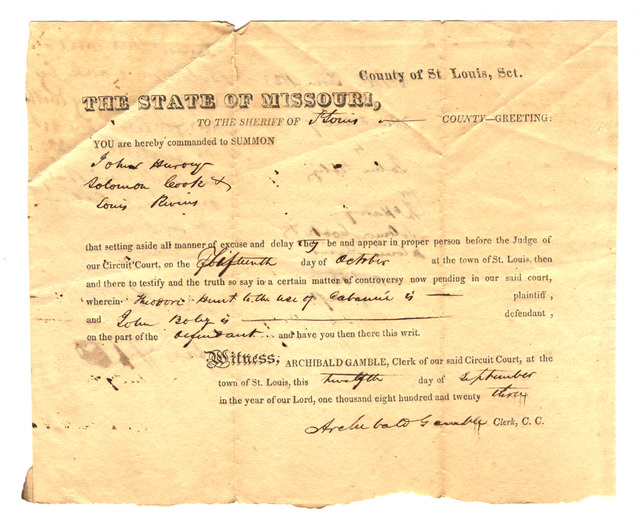 County of St. Louis, Sct.
THE STATE OF MISSOURI,
TO THE SHERIFF OF St Louis COUNTY—GREETING:
YOU are hereby commanded to SUMMON
John
Solomon Cook &
Louis
that setting aside all manner of excuse and delay they be and appear in proper person before the Judge of
our Circuit Court, on the day of October at the town of St. Louis, then
and there to testify and the truth so say in a certain matter of controversy now pending in our said court,
wherein Theodore Hunt to the use of Cabanné is — plaintiff,
and John is — defendant,
on the part of the defendant and have you then there this writ.
Witness, ARCHIBALD GAMBLE, Clerk of our said Circuit Court, at the
town of St. Louis, this twelfth day of September
in the year of our Lord, one thousand eight hundred and twenty three
Archibald Gamble Clerk, C. C.